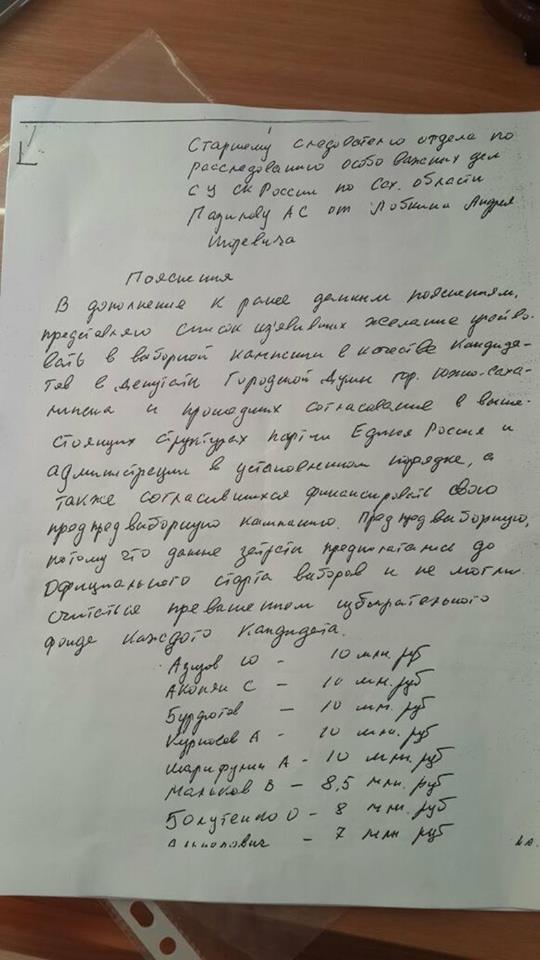 Старшему следователю отдела по
расследованию особо важных дел
СУ СК России по Сах. области
от Лобкина Андрея
Игоревича
Пояснения
В дополнение к ранее данным пояснениям,
представляю список изъявивших желание участво-
вать в выборной кампании в качестве кандида-
тов в депутаты Городской Думы гор. Южно-Саха-
линска и прошедших согласование в выше-
стоящих структурах партии Единая Россия и
администрации в установленном порядке, а
также согласившихся финансировать свою
предпредвыборную кампанию. Предпредвыборную,
потому что данные затраты предполагались до
официального старта выборов и не могли
считаться превышением избирательного
фонда каждого кандидата.
Ю - 10 млн. руб
Акопян С - 10 млн. руб
10 млн. руб
Курносов А - 10 млн. руб
Шарифулин А - 10 млн. руб
Мальков В - 8,5 млн. руб
Болутенко О - 8 млн. руб
- 7 млн руб